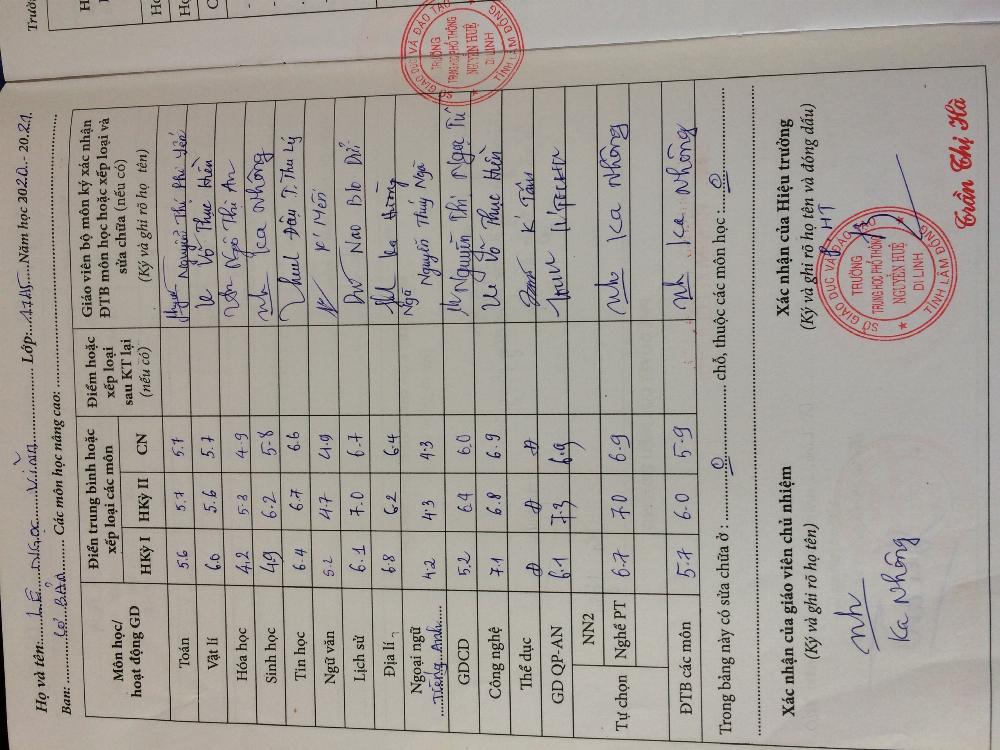 Họ và tên: LÊ NGỌC VIỄN Lớp: 11A5 Năm học 2020 - 2021
Ban: Cơ BẢN Các môn học nâng cao:
Môn học/ hoạt động GD
Điểm trung bình hoặc xếp loại các môn
HKỳ I HKỳ II CN
Điểm hoặc xếp loại sau KT lại (nếu có)
Giáo viên bộ môn ký xác nhận ĐTB môn học hoặc xếp loại và sửa chữa (nếu có)
(Ký và ghi rõ họ tên)
Toán 5.6 5.7 5.7 Nguyễn Thị Phi Yến
Vật lí 6.0 5.6 5.7 Võ Thục Hiền
Hóa học 4.2 5.3 4.9 Ngô Thị An
Sinh học 4.9 6.2 5.8 Ka Nhồng
Tin học 6.4 6.7 6.6 Đậu T. Thu Lý
Ngữ văn 5.2 4.7 4.9 K' Mến
Lịch sử 6.1 7.0 6.7
Địa lí 6.8 6.2 6.4 Ka Hương
Ngoại ngữ Tiếng Anh 4.2 4.3 4.3 Ngà Nguyễn Thúy Ngà
GDCD 5.2 6.4 6.0 Nguyễn Thị Ngọc Tú
Công nghệ 7.1 6.8 6.9 Võ Thục Hiền
Thể dục Đ Đ Đ K' Tấn
GD QP-AN 6.1 7.3 6.9
Tự chọn NN2
Nghề PT 6.7 7.0 6.9 nh Ka Nhồng
ĐTB các môn 5.7 6.0 5.9 nh Ka Nhồng
Trong bảng này có sửa chữa ở: 0 chỗ, thuộc các môn học: 0
Xác nhận của giáo viên chủ nhiệm
(Ký và ghi rõ họ tên)
nh
Ka Nhồng
Xác nhận của Hiệu trưởng
(Ký và ghi rõ họ tên và đóng dấu)
HT
SỞ GIÁO DỤC VÀ ĐÀO TẠO
TRƯỜNG
TRUNG HỌC PHỔ THÔNG
NGUYỄN HUỆ
DI LINH
TỈNH LÂM ĐỒNG
Trần Thị Hà
SỞ GIÁO DỤC VÀ ĐÀO TẠO
TRƯỜNG
TRUNG HỌC PHỔ THÔNG
NGUYỄN HUỆ
DI LINH
TỈNH LÂM ĐỒNG